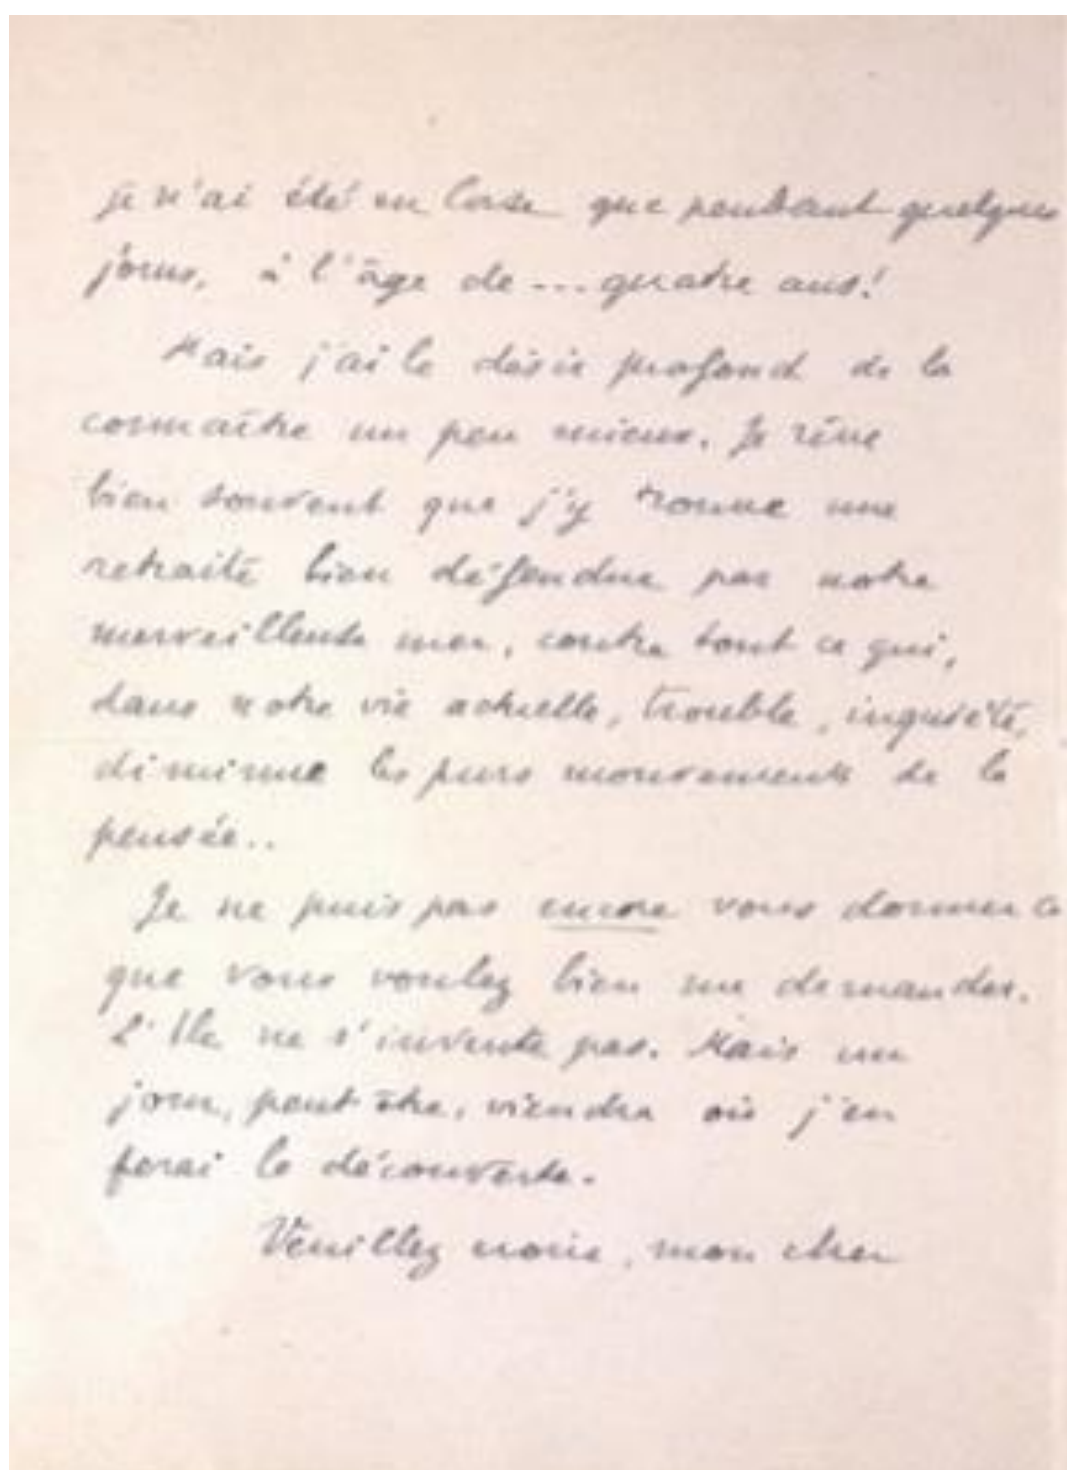 je n'ai été en Corse que pendant quelques
jours, à l'âge de --- quatre ans!
Mais j'ai le désir profond de la
connaître un peu mieux. Je rêve
bien souvent que j'y trouve une
retraite bien défendue par notre
merveilleuse mer, contre tout ce qui,
dans notre vie actuelle, trouble, inquiète,
diminue les purs mouvements de la
pensée..
Je ne puis pas encore vous donner ce
que vous voulez bien me demander.
L'Ile ne s'invente pas. Mais un
jour, peut être, viendra où j'en
ferai la découverte.
Veuillez croire, mon cher